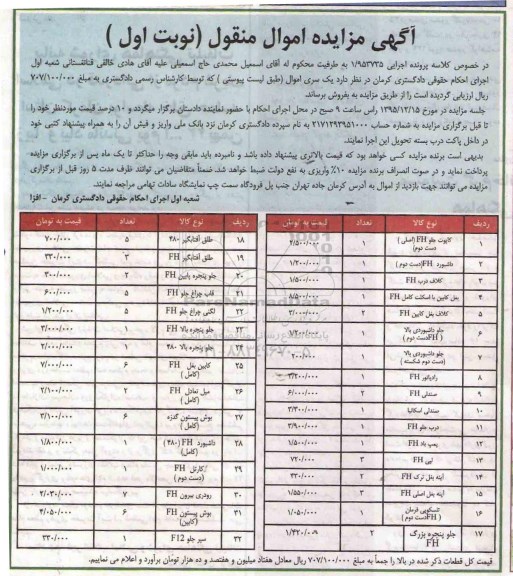 آگهی مزایده اموال منقول (نوبت اول )
در خصوص کلاسه پرونده اجرایی ۱/۹۵۳۷۳۵ به طرفیت محکوم له آقای اسمعیل محمدی حاج اسمعیلی علیه آقای هادی خالقی قنائستانی شعبه اول
اجرای احکام حقوقی دادگستری کرمان در نظر دارد یک سری اموال (طبق لیست پیوستی ) که توسط کارشناس رسمی دادگستری به مبلغ ۷۰۷/۱۰۰/۰۰۰
ریال ارزیابی گردیده است را از طریق مزایده به فروش برساند.
جلسه مزایده در مورخ ۱۳۹۵/۱۲/۱۵ راس ساعت ۹ صبح در محل اجرای احکام با حضور نماینده دادستان برگزار میگردد و ۱۰ درصد قیمت موردنظر خود را
تا قبل برگزاری مزایده به شماره حساب ۲۱۷۱۲۹۳۹۵۱۰۰۰ به نام سپرده دادگستری کرمان نزد بانک ملی واریز و فیش آن را به همراه پیشنهاد کتبی خود
در داخل پاکت درب بسته تحویل این اجرا نمایند.
بدیهی است برنده مزایده کسی خواهد بود که قیمت بالاتری پیشنهاد داده باشد و نامبرده باید مابقی وجه را حداکثر تا یک ماه پس از برگزاری مزایده
پرداخت نماید و در صورت انصراف برنده ۱۰٪ واریزی به نفع دولت ضبط خواهد شد.ضمناً متقاضیان می توانند ظرف مدت ۵ روز قبل از برگزاری
مزایده می توانند جهت بازدید از اموال به آدرس کرمان جاده تهران جنب پل فرودگاه سمت چپ نمایشگاه سادات تهامی مراجعه نمایند.
شعبه اول اجرای احکام حقوقی دادگستری کرمان – افزا
ردیف نوع کالا تعداد قیمت به تومان
۱ کاپوت جلو FH(اصلی ) دست دوم) ۱ ۲/۵۰۰/۰۰۰
۲ داشبورد FH(دست دوم ) ۱ ۱/۲۰۰/۰۰۰
۳ کلاف درب FH ۱ ۱/۵۰۰/۰۰۰
۴ بغل کابین با اسکلت کامل FH ۱ ۸/۵۰۰/۰۰۰
۵ کلاف بغل کابین FH ۲ ۳/۰۰۰/۰۰۰
۶ جلو داشبوردی بالا FH(دست دوم ) ۱ ۱/۲۰۰/۰۰۰
۷ جلو داشبوردی بالا (دست دوم شکسته ) ۱
۸ رادیاتور FH ۱ ۳/۲۰۰/۰۰۰
۹ صندلی FH ۲ ۶/۰۰۰/۰۰۰
۱۰ صندلی اسکانیا ۱ ۳/۲۰۰/۰۰۰
۱۱ درب جلو FH ۱ ۳/۹۰۰/۰۰۰
۱۲ پمپ باد FH ۱ ۱/۵۰۰/۰۰۰
۱۳ لپی FH ۳ ۷۲۰/۰۰۰
۱۴ آینه بغل ترک FH ۲ ۳۳۰/۰۰۰
۱۵ آینه بغل اصلی FH ۳ ۱/۵۵۰/۰۰۰
۱۶ تلسکوپی فرمان FH(دست دوم ) ۱ ۱/۰۵۰/۰۰۰
۱۷ جلو پنجره بزرگ FH ۲ ۱/۴۲۰/۰۰۰
ردیف نوع کالا تعداد قیمت به تومان
۱۸ طلق آفتابگیر ۴۸۰ ۵ ۷۰۰/۰۰۰
۱۹ طلق آفتابگیر FH ۳ ۳۳۰/۰۰۰
۲۰ جلو پنجره پایین FH ۲ ۳۰۰/۰۰۰
۲۱ قاب چراغ جلو FH ۵ ۶۰۰/۰۰۰
۲۲ لگنی چراغ جلو FH ۵ ۱/۲۰۰/۰۰۰
۲۳ جلو پنجره بالا FH ۱ ۳/۰۰۰/۰۰۰
۲۴ جلو پنجره بالا ۴۸۰ ۱ ۲/۰۰۰/۰۰۰
۲۵ کابین بغل FH (کامل ) ۶ ۷/۰۰۰/۰۰۰
۲۶ میل تعادل FH (کامل ) ۲ ۲/۱۰۰/۰۰۰
۲۷ بوش پیستون گنزه (کامل ) ۶ ۳/۱۰۰/۰۰۰
۲۸ داشبورد FH (۴۸۰ ) (کامل) ۱ ۱/۸۰۰/۰۰۰
۲۹ کارتل FH (دست دوم ) ۱ ۱/۰۰۰/۰۰۰
۳۰ رودری بیرون FH ۷ ۲/۰۳۰/۰۰۰
۳۱ بوش پیستون FH (کابین) ۶ ۴/۰۵۰/۰۰۰
۳۲ سپر جلو F12 ۱ ۳۳۰/۰۰۰
قیمت کل قطعات ذکر شده در بالا را جمعاً به مبلغ ۷۰۷/۱۰۰/۰۰۰ ریال معادل هفتاد میلیون و هفتصد و ده هزار تومان برآورد و اعلام می نماییم.